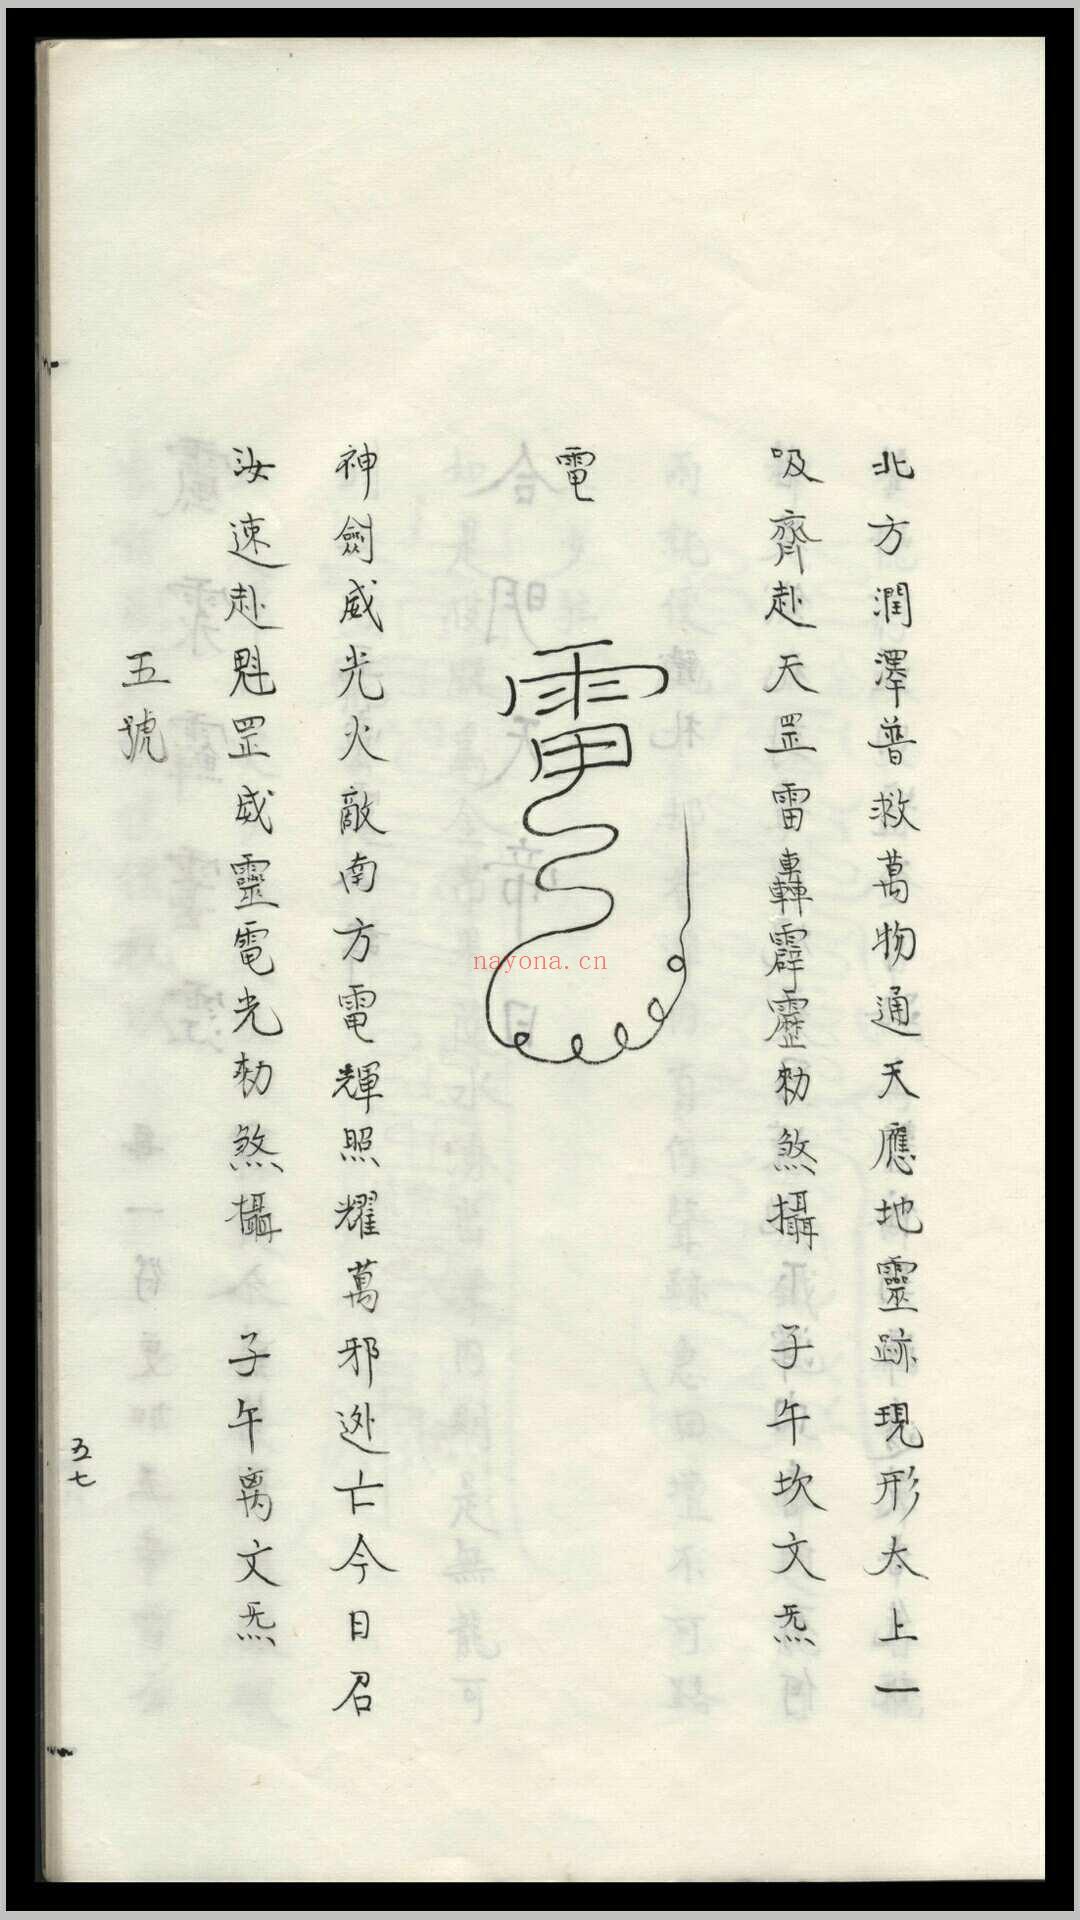 北方潤澤普救萬物通天應地靈跡現形太上一
吸齊赴天罡雷轟霹靂勑煞攝　子午坎文炁
電
神劍威光火敵南方電輝照耀萬邪迯亡今日召
汝速赴魁罡威靈電光勑煞攝　子午离文炁
五號
五七
nayona.cn